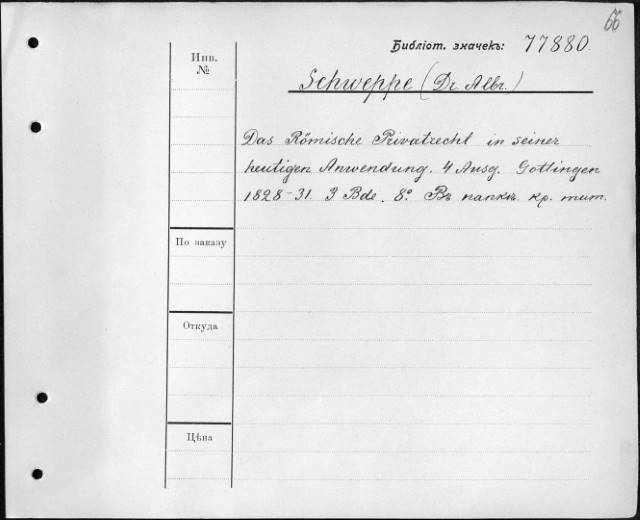 66
Библіот. значекъ: 77880.
Инв.
№
Schweppe (Dr Albr.)
Das Römische Privatrecht in seiner
heutigen Anwendung. 4 Ausg. Gottingen
1828-31. 3 Bde. 8° Въ папкѣ. кр. тит.
По заказу
Откуда
Цѣна